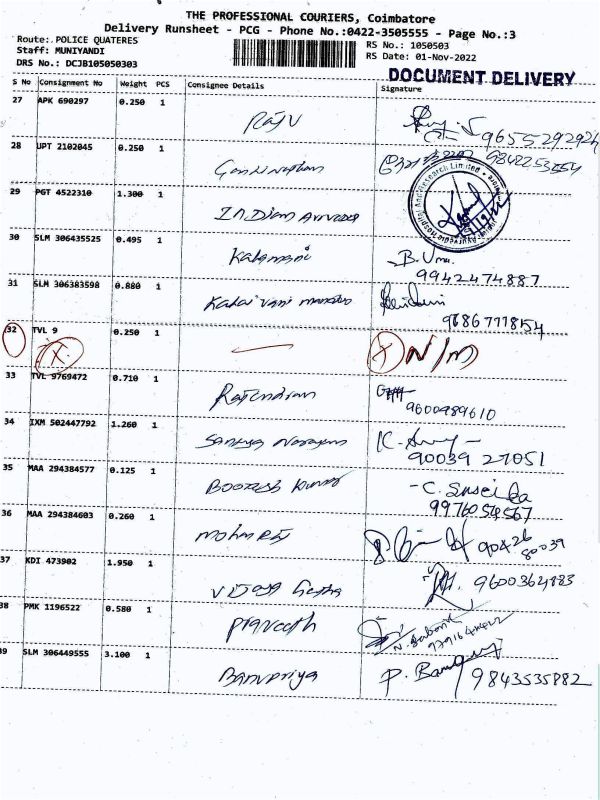 THE PROFESSIONAL COURIERS, Coimbatore
Delivery Runsheet - PCG - Phone No.:0422-3505555 - Page No.:3
Route: POLICE QUATERES
RS No.: 1050503
Staff: MUNIYANDI
RS Date: 01-Nov-2022
DRS No.: DCJB105050303
DOCUMENT DELIVERY
S No Consignment No Weight PCS Consignee Details Signature
27 APK 690297 0.250 1 Raju 9655292924
28 UPT 2102045 0.250 1 9842253554
29 PGT 4522310 1.300 1 Indian
30 SLM 306435525 0.495 1 Kalamani B. Uma
9942474887
31 SLM 306383598 0.880 1 Kalaivani
32 TVL 9 0.250 1 — X N/M
X
33 TVL 9769472 0.710 1 Rajendran
9600989610
34 IXM 502447792 1.260 1 Sathya Narayan
90039 27051
35 MAA 294384577 0.125 1 Boopesh Kumar
9976054567
36 MAA 294384603 0.260 1 90426
80039
37 KDI 473902 1.950 1 9600364883
38 PMK 1196522 0.580 1 Praneeth
39 SLM 306449555 3.100 1 Banupriya P. Banu
9843535882